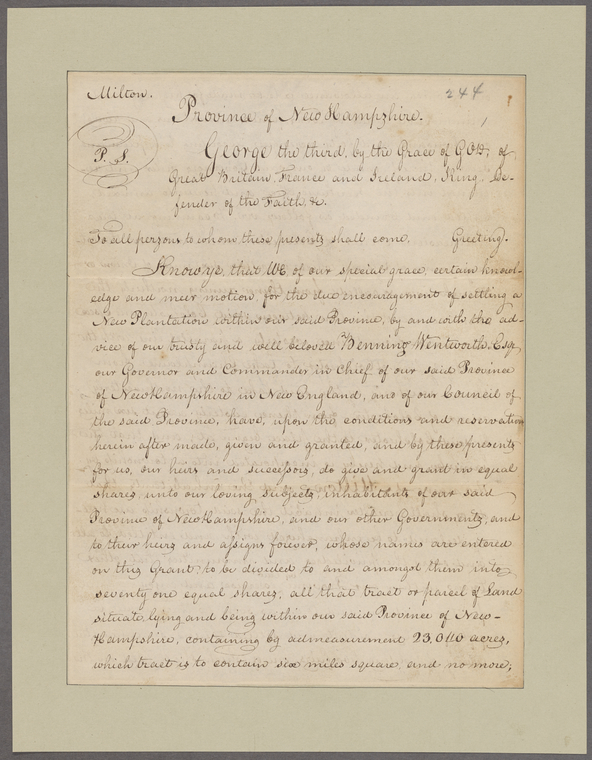 Milton.
244
Province of New Hampshire.
P. S.
George the third, by the Grace of GOD, of
Great Britain France and Ireland, King, De-
fender of the Faith &c.
To all persons to whom these presents shall come, Greeting.
Know ye, that We of our special grace, certain knowl-
edge and meer motion, for the due encouragement of settling a
New Plantation within our said Province, by and with the ad-
vice of our trusty and well beloved Benning Wentworth, Esqr
our Governor and Commander in Chief of our said Province
of New Hampshire in New England, and of our Council of
the said Province, have, upon the conditions and reservations
herein after made, given and granted, and by these presents
for us, our heirs and successors, do give and grant in equal
shares, unto our loving subjects, inhabitants of our said
Province of New Hampshire, and our other Governments, and
to their heirs and assigns forever, whose names are entered
on this Grant to be divided to and amongst them into
seventy one equal shares, all that tract or parcel of Land
situate lying and being within our said Province of New-
Hampshire, containing by admeasurement 23,040 acres,
which tract is to contain six miles square, and no more;